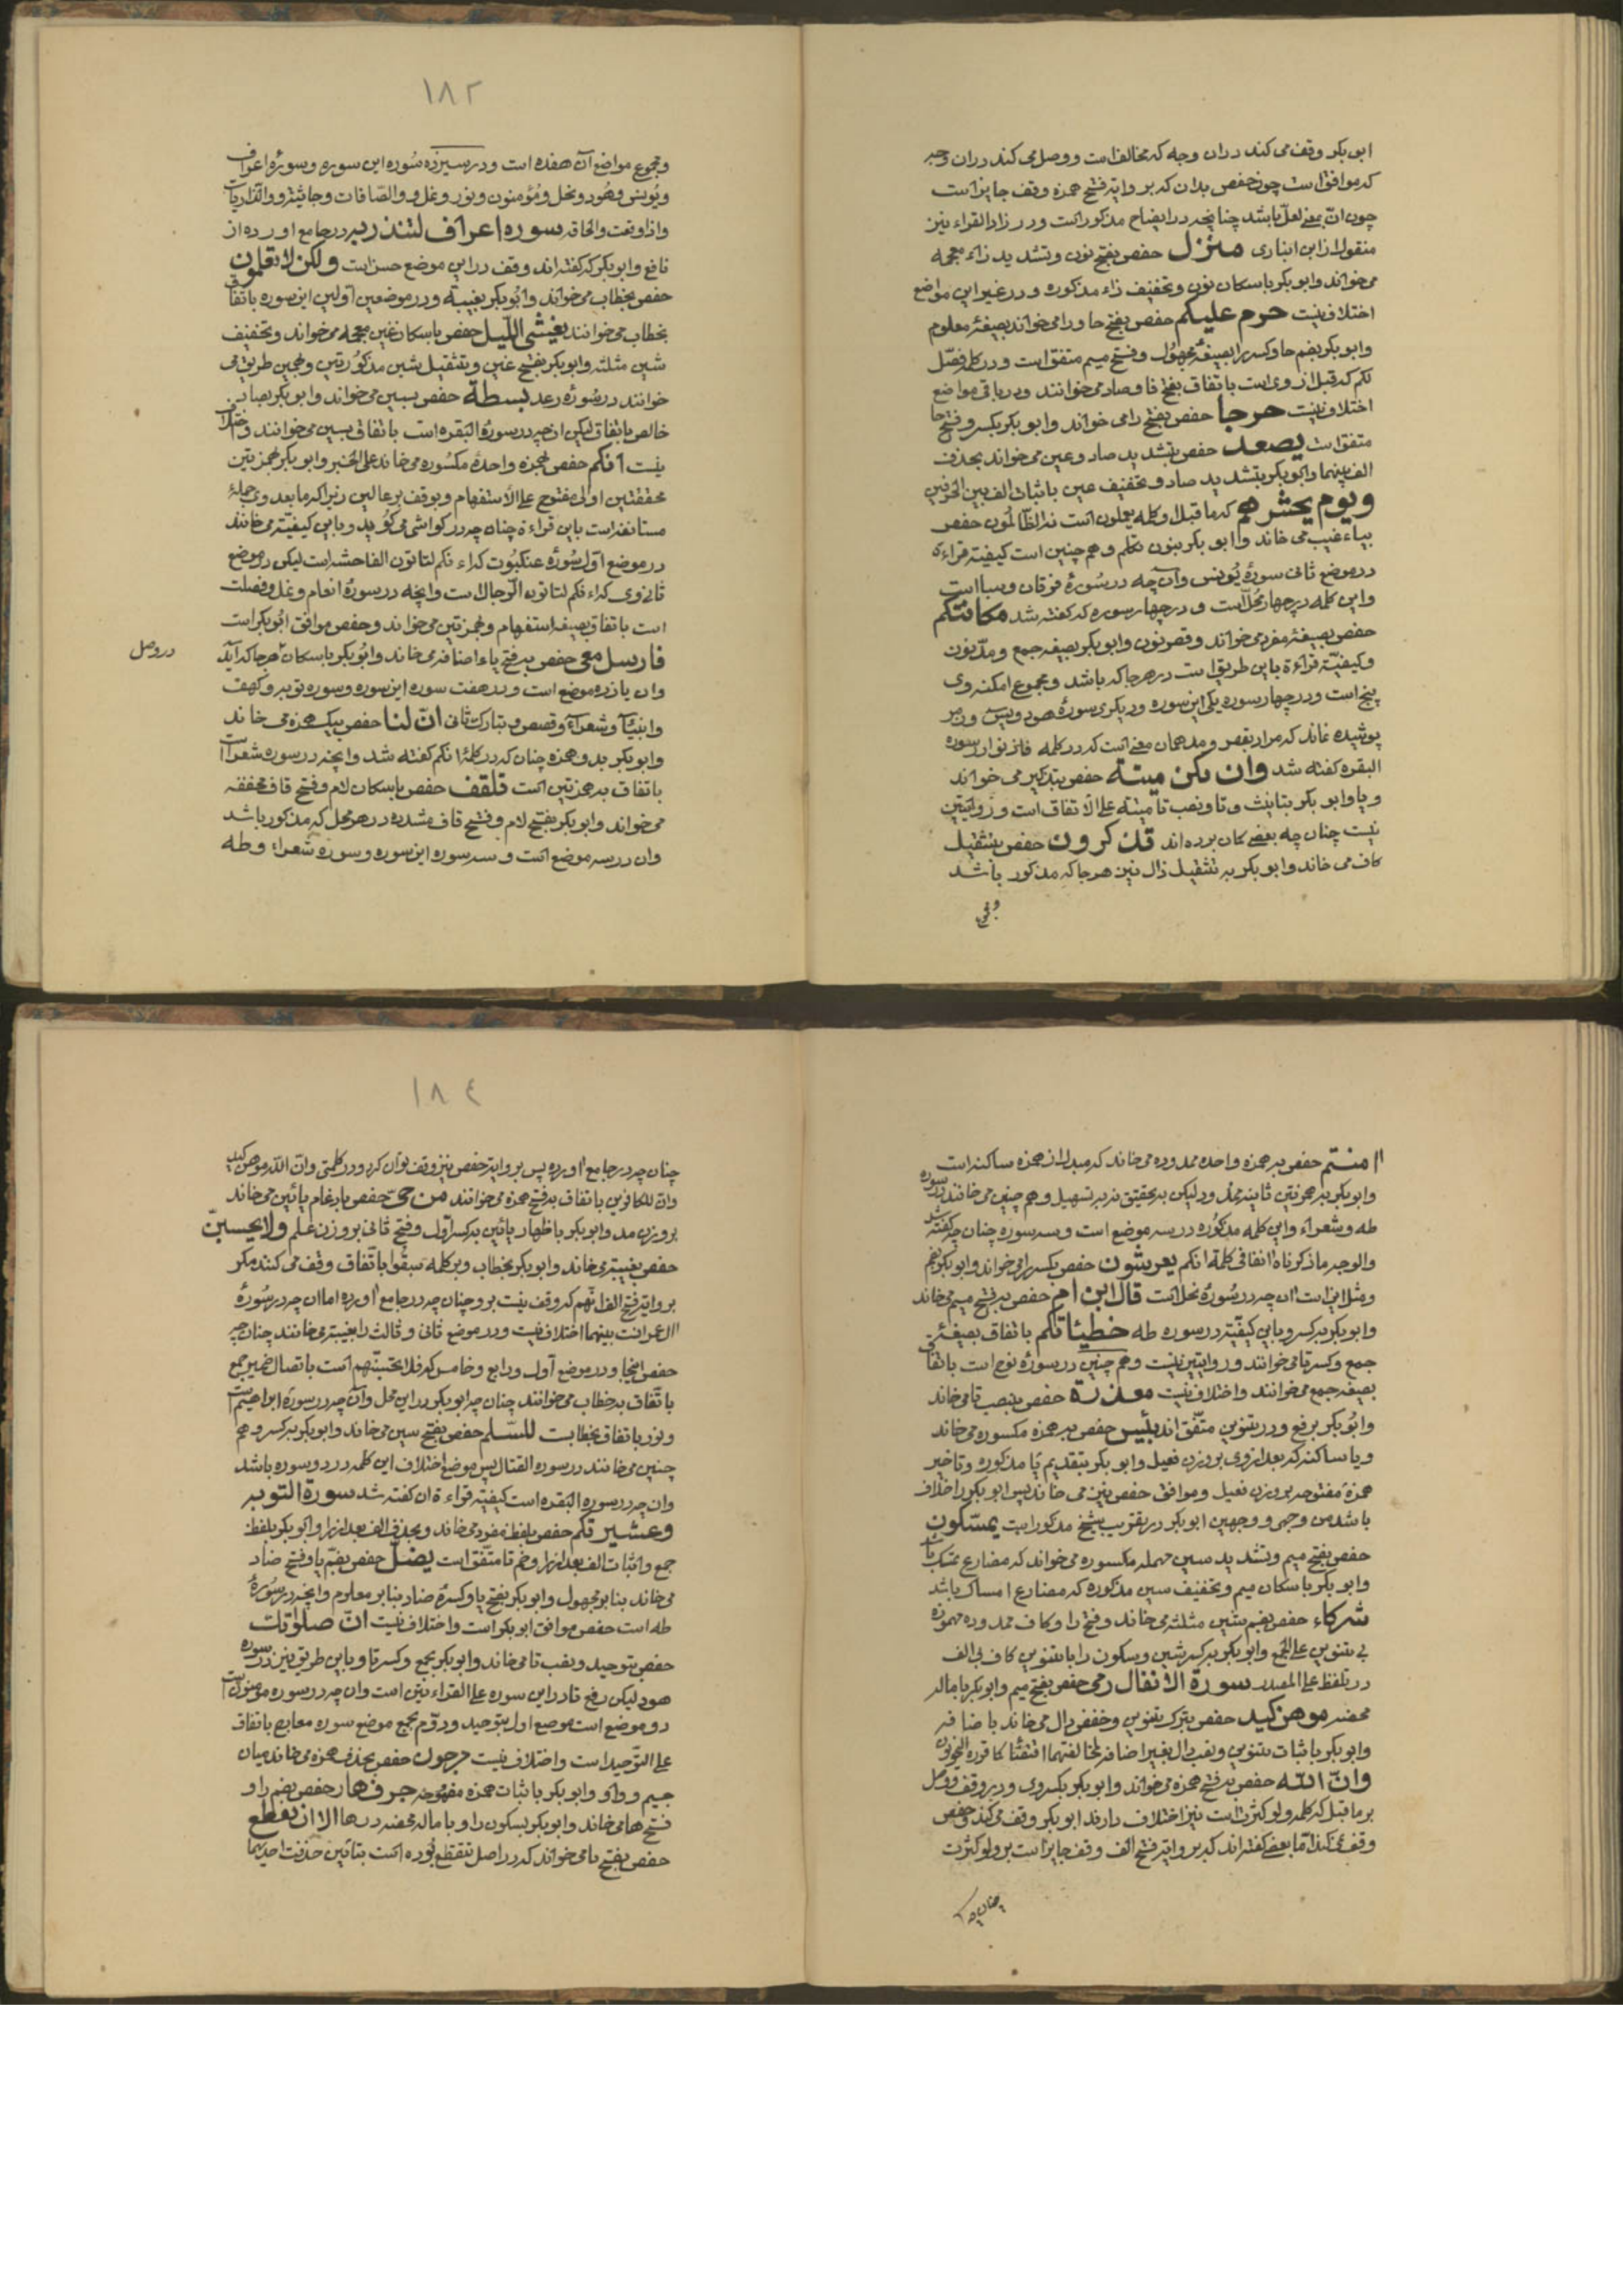 ابو بکر وقف می کند در ان وجه که مخالف است و وصل می کند در ان وجه
که موافق است چون حفص بدان که بر وایة فتح همزه وقف جایز است
چون انّ بمعنی لعلّ باشد چنانچه در ایضاح مذکور است و در زاد القراء نیز
منقول از ابن انباری منزل حفص بفتح نون و تشدید زاء معجمه
می خواند و ابو بکر باسکان نون و تخفیف زاء مذکوره و در غیر این مواضع
اختلاف نیست حرم علیکم حفص بفتح حا و را می خواند بصیغهٔ معلوم
و ابو بکر بضم حا و کسر را بصیغهٔ مجهول و فتح میم متفق است و در کلمه فصّل
لکم که قبل از وی است باتفاق بفتح فا و صاد می خوانند و در باقی مواضع
اختلاف نیست حرجا حفص بفتح را می خواند و ابو بکر بکسر و فتح حا
متفق است یصعد حفص بتشدید صاد و عین می خواند بحذف
الف بینهما و ابو بکر بتشدید صاد و تخفیف عین باثبات الف بین الحرفین
ویوم یحشرهم که ما قبل او کلمه یعملون است نه الظالمون حفص
بیاء غیب می خاند و ابو بکر بنون تکلم و هم چنین است کیفیة قراءة
در موضع ثانی سورهٔ یونس و آن چه در سورهٔ فرقان و سبا است
و این کلمه در چهار محل است و در چهار سوره که گفته شد مکانتکم
حفص بصیغهٔ مفرد می خواند و قصر نون و ابو بکر بصیغه جمع و مدّ نون
و کیفیّة قراءة باین طریق است در هر جا که باشد و مجموع امکنه وی
پنج است و در چهار سوره یکی این سوره و دیگری سورهٔ هود و یس و زمر
پوشیده نماند که مراد بقصر و مد همان معنی است که در کلمه فاذنوا از سوره
البقره گفته شد وان یکن میتة حفص بتذکیر می خواند
و یا و ابو بکر بتانیث و تا و نصب تا میته علی الاتفاق است و روایتین
نیست چنان چه بعضی کان برده اند تذکرون حفص بتثقیل
کاف می خاند و ابو بکر به تثقیل ذال نیز هر جا که مذکور باشد
۱۸۲
و مجموع مواضع آن هفده است و در سیزده سوره این سوره و سورهٔ اعراف
و یونس و هود و نحل و مؤمنون و نور و نمل و والصّافات و جاثیة و والذاریات
و اذا وقعت و الحاقه سوره اعراف لتنذر به در جامع اورده از
نافع و ابو بکر که گفته اند وقف در این موضع حسن است ولکن لا تعلمون
حفص بخطاب می خواند و ابو بکر بغیبة و در موضعین اولین این سوره باتفاق
بخطاب می خوانند یغشی اللّیل حفص باسکان غین معجمه می خواند و تخفیف
شین مثلثه و ابو بکر بفتح غین و تثقیل شین مذکورتین و بهمین طریق می
خوانند در سورهٔ رعد بسطة حفص بسین می خواند و ابو بکر بصاد
خالص باتفاق لیکن ان چه در سورهٔ البقره است باتفاق بسین می خوانند و اختلاف
نیست ءانکم حفص بهمزهٔ واحدهٔ مکسوره می خاند علی الخبر و ابو بکر بهمزتین
محققتین اولی مفتوح علی الاستفهام و بوقف بر عالین زیرا که ما بعد وی جملهٔ
مستانفه است باین قراءة چنان چه در کواشی می گوید و باین کیفیّة می خانند
در موضع اول سورهٔ عنکبوت که اءنکم لتاتون الفاحشه است لیکن در موضع
ثانی وی که اءنکم لتاتون الرّجال است و انچه در سورهٔ انعام و نمل و فصلت
است باتفاق بصیغه استفهام و بهمزتین می خواند و حفص موافق ابو بکر است
فارسل معی حفص به فتح یاء اضافه می خاند و ابو بکر باسکان هر جا که آید
در وصل
وان یازده موضع است و در هفت سوره این سوره و سوره توبه و کهف
و انبیآ و شعرآء و قصص و تبارک ثانی انّ لنا حفص بیک همزه می خاند
و ابو بکر بدو همزه چنان که در کلمهٔ انکم گفته شد و انچه در سوره شعرا است
باتفاق به همزتین است تلقف حفص باسکان لام و فتح قاف مخففه
می خواند و ابو بکر بفتح لام و فتح قاف مشدده در هر محل که مذکور باشد
وان در سه موضع است و سه سوره این سوره و سوره شعراء و طه
ءامنتم حفص به همزه واحده ممدوده می خاند که مبدل از همزه ساکنه است
و ابو بکر به همزتین ثانیه ممدود لیکن به تحقیق نه به تسهیل و هم چنین می خانند در سوره
طه و شعراء و این کلمه مذکوره در سه موضع است و سه سوره چنان چه گفته شد
والوجه ما ذکرناه انفا فی کلمة انکم یعرشون حفص بکسر را می خواند و ابو بکر بضم
و مثل این است ان چه در سورهٔ نحل است قال ابن ام حفص به فتح میم می خاند
و ابو بکر به کسر و باین کیفیّة در سوره طه خطیئاتکم باتفاق بصیغهٔ
جمع و کسر تا می خوانند و روایتین نیست و هم چنین در سورهٔ نوح است باتفاق
بصیغه جمع می خوانند و اختلاف نیست معذرة حفص بنصب تا می خاند
و ابو بکر برفع و در تنوین متّفق اند بئیس حفص به همزه مکسوره می خاند
و یا ساکنه که بعد از وی بر وزن فعیل و ابو بکر بتقدیم یا مذکوره و تاخیر
همزهٔ مفتوحه بر وزن فعیل و موافق حفص نیز می خاند پس ابو بکر را خلاف
باشد من وجهی و وجهین ابو بکر در تقریب شیخ مذکور است یمسّکون
حفص بفتح میم و تشدید سین مهمله مکسوره می خواند که مضارع تمسّک باشد
و ابو بکر باسکان میم و تخفیف سین مذکوره که مضارع امساک باشد
شرکاء حفص بضم شین مثلثه می خاند و فتح را و کاف ممدوده مهموزه
بی تنوین علی الجمع و ابو بکر به کسر شین و سکون را با تنوین کاف بی الف
در تلفظ علی المصدر سورة الانفال رمی حفص بفتح میم و ابو بکر باماله
محضه موهن کید حفص بترک تنوین و خفض دال می خاند باضافه
و ابو بکر باثبات تنوین و نصب دال بغیر اضافه
وانّ الله حفص به فتح همزه می خواند و ابو بکر بکسر وی و در وقف و وصل
بر ما قبل که کلمه ولو کثرت است نیز اختلاف دارند ابو بکر وقف می کند و حفص
وقف نمی کند اما بعضی گفته اند که بر وایة فتح الف وقف جایز است بر ولو کثرت
چنان چه
۱۸٤
چنان چه در جامع اورده پس بر وایة حفص نیز وقف توان کرد و در کلمتی وانّ الله موهن کید
وانّ للکافرین باتفاق به فتح همزه می خوانند من حیّ حفص بادغام یائین می خاند
بر وزن مد و ابو بکر باظهار یائین به کسر اوّل و فتح ثانی بر وزن علم ولا یحسبنّ
حفص بغیبة می خاند و ابو بکر بخطاب و بر کلمه سبقوا باتّفاق وقف می کنند مگر
بر وایة فتح الف انّهم که وقف نیست بر و چنان چه در جامع اورده اما ان چه در سورهٔ
ال عمران است بینهما اختلاف نیست و در موضع ثانی و ثالث را بغیبة می خانند چنان چه
حفص اینجا و در موضع اول و رابع و خامس که فلا تحسبنّهم است باتصال ضمیر جمع
باتّفاق به خطاب می خوانند چنان چه ابو بکر در این محل وآن چه در سورهٔ ابراهیم است
و نور باتفاق بخطاب است للسّلم حفص بفتح سین می خاند و ابو بکر به کسر و هم
چنین می خانند در سوره القتال پس موضع اختلاف این کلمه در دو سوره باشد
وان چه در سوره البقره است کیفیّة قراءة ان گفته شد سورة التوبه
وعشیرتکم حفص بلفظ مفرد می خاند و بحذف الف بعد از را و ابو بکر بلفظ
جمع و اثبات الف بعد از را و ضم تا متّفق است یضلّ حفص بضمّ یا و فتح ضاد
می خاند بنابر مجهول و ابو بکر بفتح یا و کسرهٔ ضاد بنابر معلوم و انچه در سورهٔ
طه است حفص موافق ابو بکر است و اختلاف نیست انّ صلوتک
حفص بتوحید و نصب تا می خاند و ابو بکر بجمع و کسر تا و باین طریق نیز در سوره
هود لیکن رفع تا در این سوره علی القراءتین است وان چه در سوره مؤمنون است
دو موضع است موضع اول بتوحید و دوّم بجمع موضع سوره معارج باتفاق
علی التّوحید است و اختلاف نیست مرجون حفص بحذف همزه می خاند میان
جیم و واو و ابو بکر باثبات همزه مضمومه جرف هار حفص بضم را و
فتح ها می خاند و ابو بکر بسکون را و باماله محضه در ها الا ان تقطع
حفص بفتح تا می خواند که در اصل تتقطع بوده است بتائین حذفت احدیهما